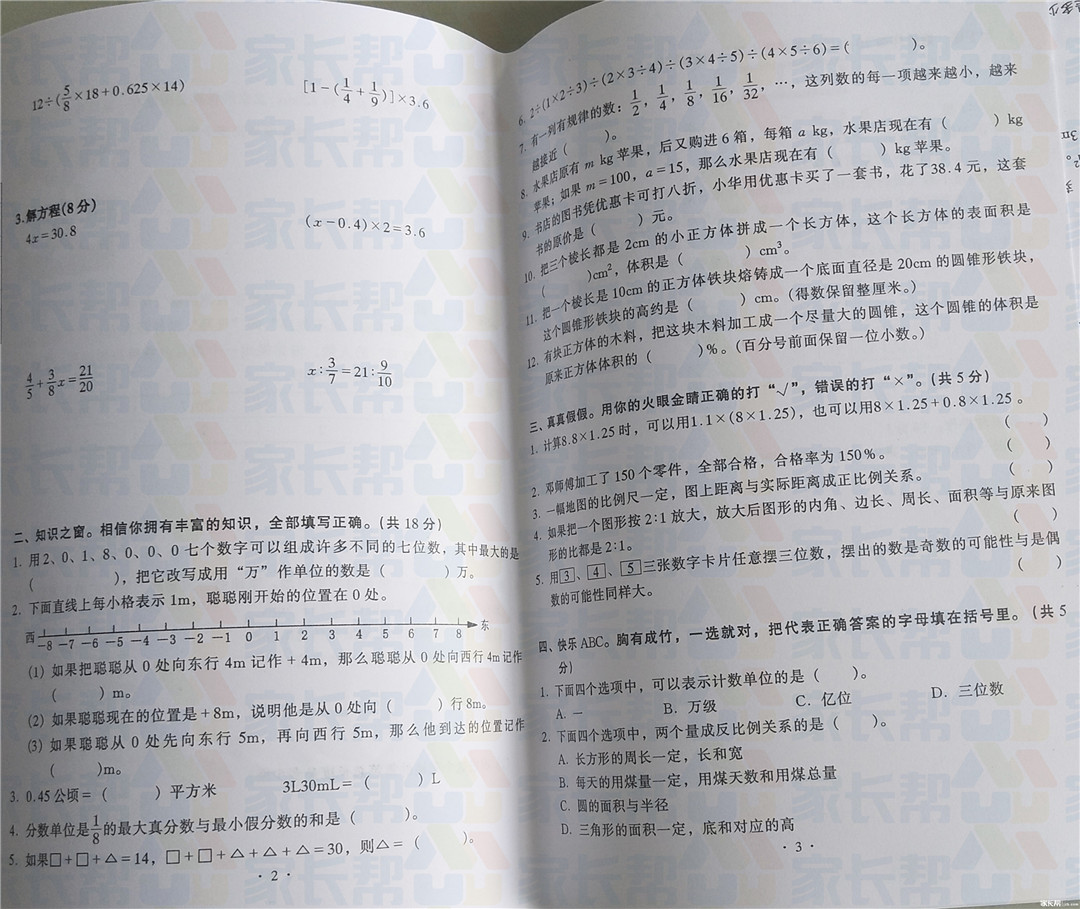 12÷(5/8×18+0.625×14)
[1-(1/4+1/9)]×3.6
3.解方程(8分)
4x=30.8
(x-0.4)×2=3.6
4/5+3/8x=21/20
x∶3/7=21∶9/10
二、知识之窗。相信你拥有丰富的知识，全部填写正确。(共18分)
1. 用2、0、1、8、0、0、0七个数字可以组成许多不同的七位数，其中最大的是
( )，把它改写成用“万”作单位的数是( )万。
2. 下面直线上每小格表示1m，聪聪刚开始的位置在0处。
西 -8 -7 -6 -5 -4 -3 -2 -1 0 1 2 3 4 5 6 7 8 东
(1) 如果把聪聪从0处向东行4m记作+4m，那么聪聪从0处向西行4m记作
( )m。
(2) 如果聪聪现在的位置是+8m，说明他是从0处向( )行8m。
(3) 如果聪聪从0处先向东行5m，再向西行5m，那么他到达的位置记作
( )m。
3. 0.45公顷=( )平方米 3L30mL=( )L
4. 分数单位是1/8的最大真分数与最小假分数的和是( )。
5. 如果□+□+△=14，□+□+△+△+△=30，则△=( )。
· 2 ·
6. 2÷(1×2÷3)÷(2×3÷4)÷(3×4÷5)÷(4×5÷6)=( )。
7. 有一列有规律的数：1/2，1/4，1/8，1/16，1/32，…，这列数的每一项越来越小，越来
越接近( )。
8. 水果店原有m kg苹果，后又购进6箱，每箱a kg，水果店现在有( )kg
苹果；如果m=100，a=15，那么水果店现在有( )kg苹果。
9. 书店的图书凭优惠卡可打八折，小华用优惠卡买了一套书，花了38.4元，这套
书的原价是( )元。
10. 把三个棱长都是2cm的小正方体拼成一个长方体，这个长方体的表面积是
( )cm²，体积是( )cm³。
11. 把一个棱长是10cm的正方体铁块熔铸成一个底面直径是20cm的圆锥形铁块，
这个圆锥形铁块的高约是( )cm。(得数保留整厘米。)
12. 有块正方体的木料，把这块木料加工成一个尽量大的圆锥，这个圆锥的体积是
原来正方体体积的( )%。(百分号前面保留一位小数。)
三、真真假假。用你的火眼金睛正确的打“√”，错误的打“×”。(共5分)
1. 计算8.8×1.25时，可以用1.1×(8×1.25)，也可以用8×1.25+0.8×1.25。
( )
2. 邓师傅加工了150个零件，全部合格，合格率为150%。 ( )
3. 一幅地图的比例尺一定，图上距离与实际距离成正比例关系。 ( )
4. 如果把一个图形按2∶1放大，放大后图形的内角、边长、周长、面积等与原来图
形的比都是2∶1。 ( )
5. 用3、4、5三张数字卡片任意摆三位数，摆出的数是奇数的可能性与是偶
数的可能性同样大。 ( )
四、快乐ABC。胸有成竹，一选就对，把代表正确答案的字母填在括号里。(共5
分)
1. 下面四个选项中，可以表示计数单位的是( )。
A. 一 B. 万级 C. 亿位 D. 三位数
2. 下面四个选项中，两个量成反比例关系的是( )。
A. 长方形的周长一定，长和宽
B. 每天的用煤量一定，用煤天数和用煤总量
C. 圆的面积与半径
D. 三角形的面积一定，底和对应的高
· 3 ·
家长帮